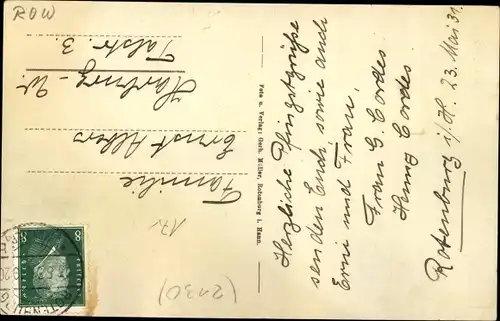 ROW
Rotenburg i/H. 23. Mai 31.
Herzliche Pfingstgrüße
senden Euch sowie auch
Erni und Frau,
Frau G. Cordes
Cordes
Foto u. Verlag: Gerh. Müller, Rotenburg i. Hann.
Familie
Ernst Albers
Harburg-W.
Talstr. 3.
17.
8 8
(2130)